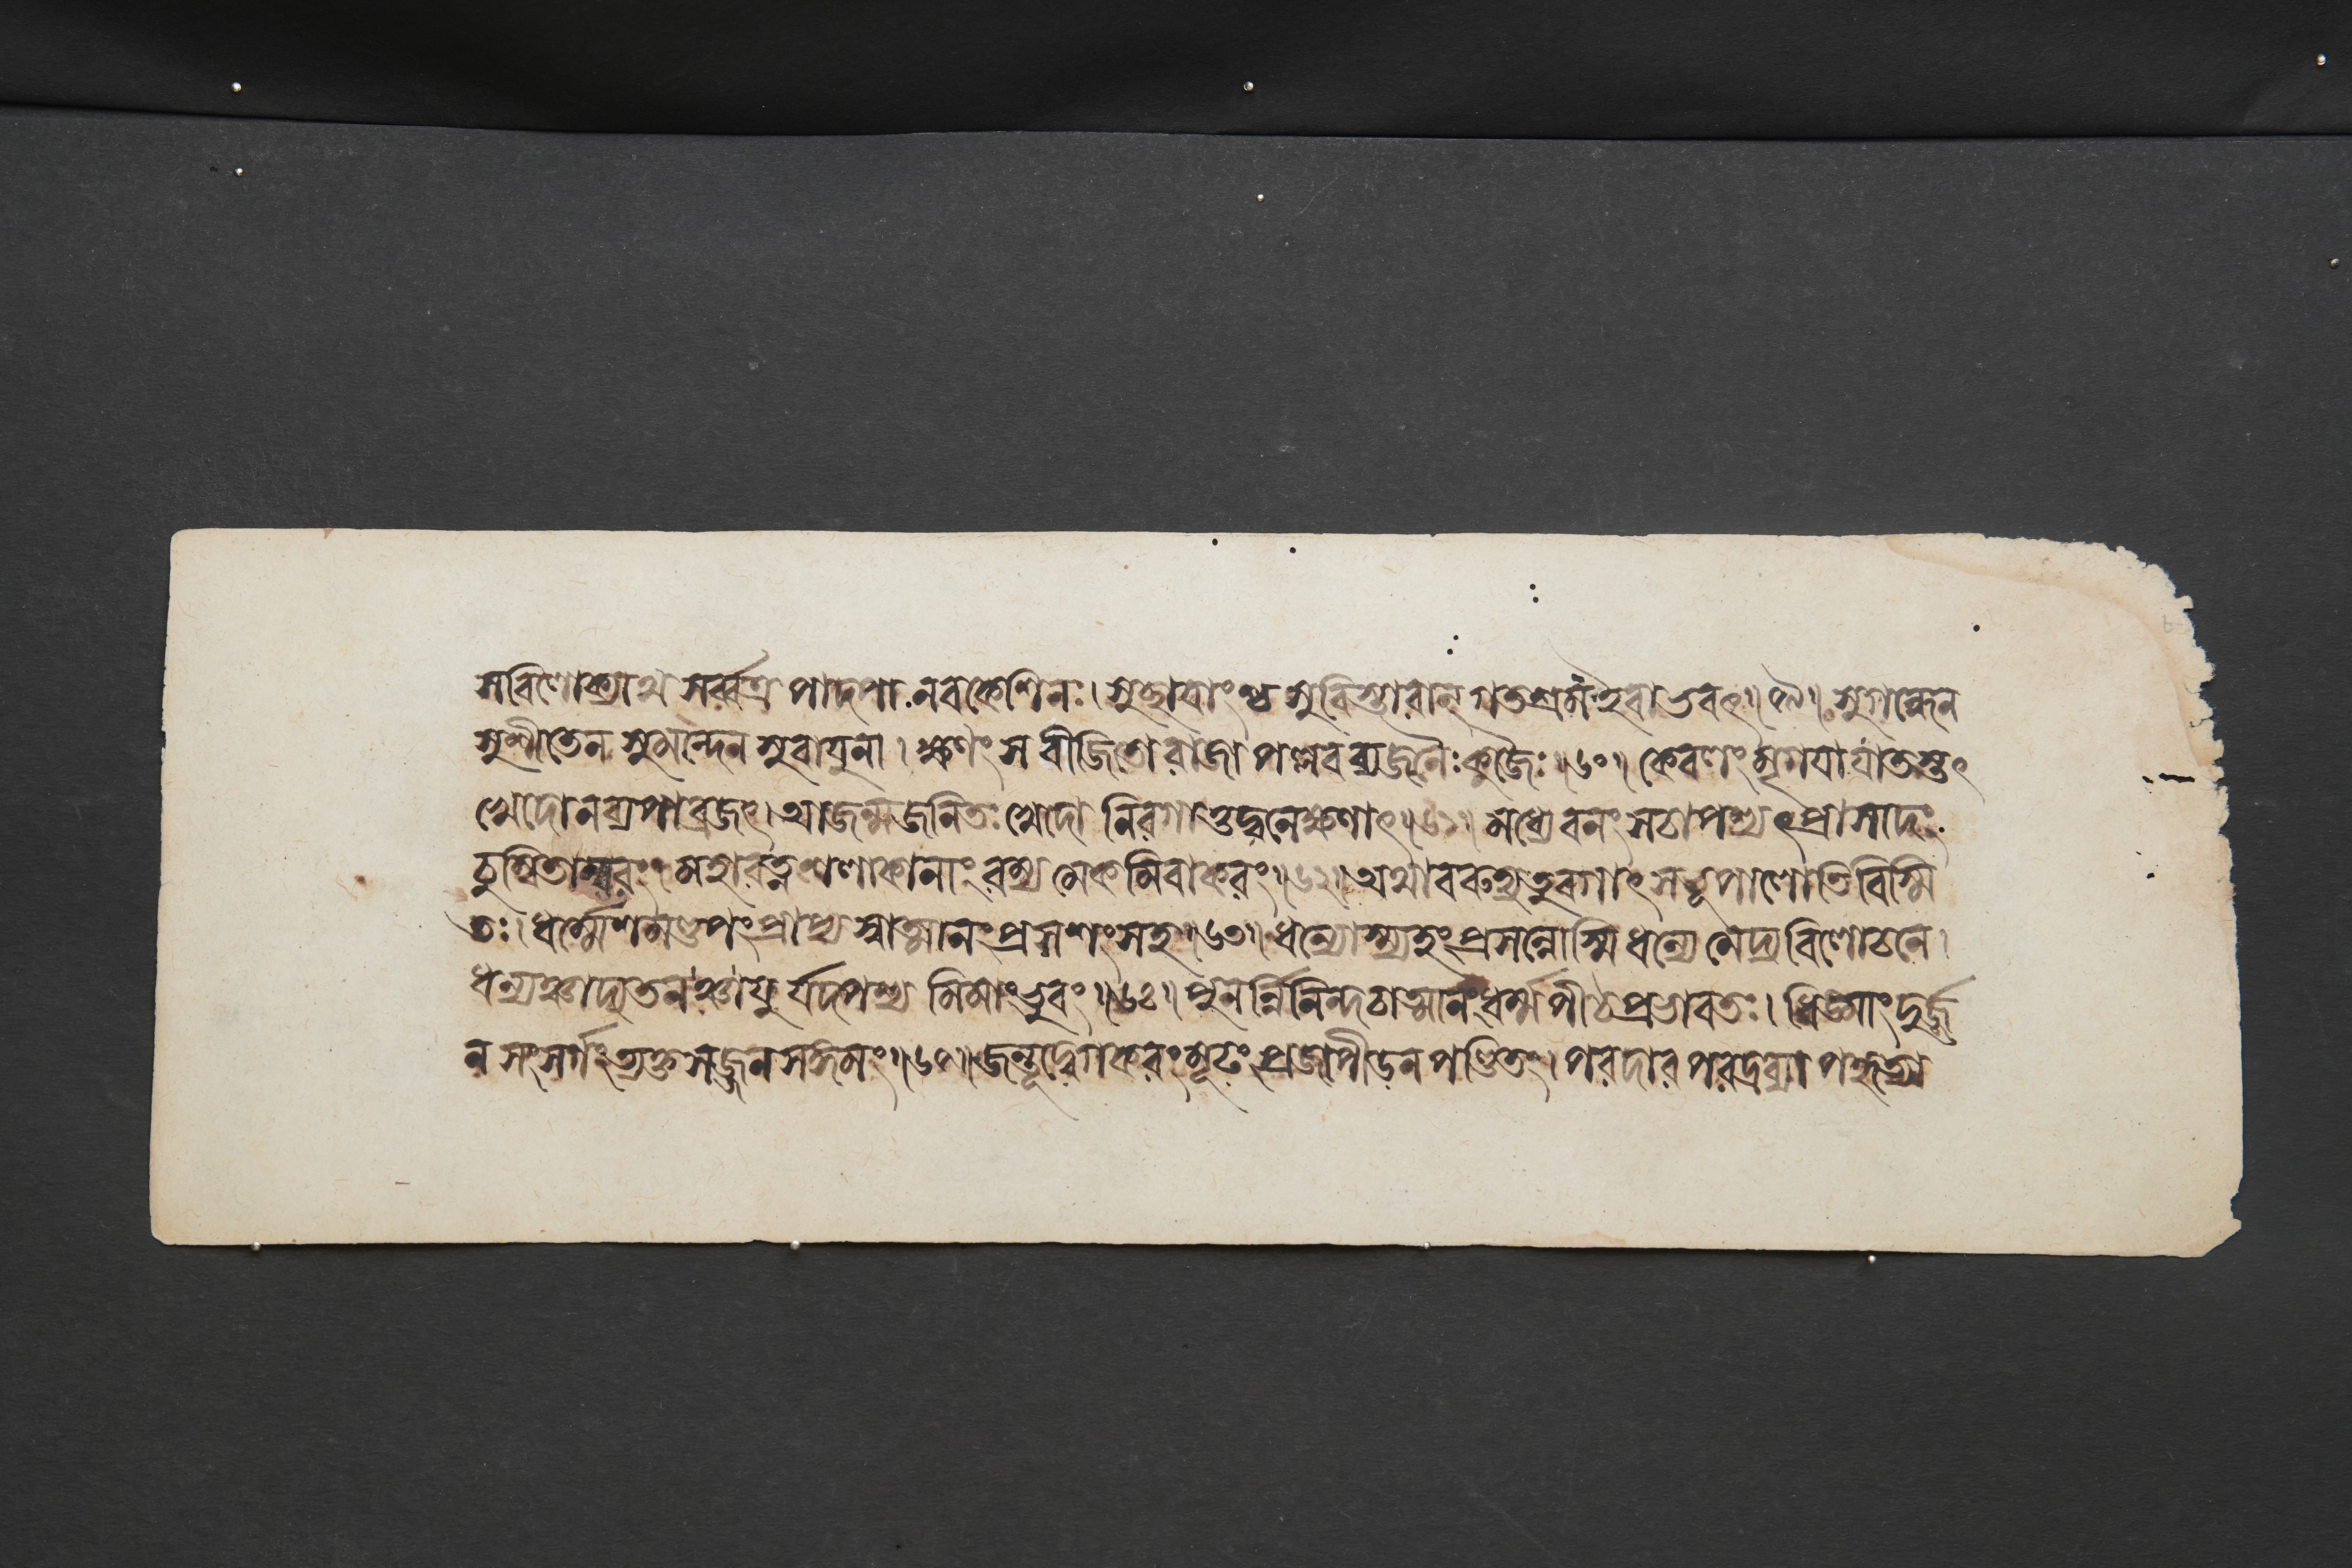 স বিলোক্যাথ সর্ব্বত্র পাদপা নবকেশিনঃ। সুচ্ছায়াংশ্চ সুবিস্তারান্ গতশ্রম ইবাভবৎ॥৫৯॥ সুগন্ধেন
সুশীতেন সুমন্দেন সুবায়ুনা। ক্ষণং স বীজিতো রাজা পল্লবব্যজনৈঃ কুজৈঃ॥৬০॥ কেবলং মৃগয়াযাতস্তৎ
খেদো ন ব্যপাব্রজৎ। আজন্মজনিতঃ খেদো নিরগাত্তদ্বনেক্ষণাৎ॥৬১॥ মধ্যেবনং সচাপশ্যৎপ্রাসাদং
চুম্বিতাম্বরং। মহারত্ন শলাকানাং রম্যমেকমিবাকরং॥৬২॥ অথাবরুহ্য তুরগাৎ স ভূপালোতিবিস্মি
তঃ। ধর্ম্মেশমণ্ডপং প্রাপ্য স্বাত্মানং প্রশশংসহ॥৬৩॥ ধন্যোস্ম্যহং প্রসন্নোস্মি ধন্যে মেদ্য বিলোচনে।
ধন্যমদ্যতনঞ্চায়ুর্যদপশ্যমিমাং ভুবং॥৬৪॥ পুনর্ন্নিনিন্দচাত্মানং ধর্ম্মপীঠপ্রভাবতঃ। ধিঙ্মাং দুর্জ্জ
নসংসর্গং ত্যক্তসজ্জনসঙ্গমং॥৬৫॥ জন্তূদ্বেগকরং মূঢং প্রজাপীডনপণ্ডিতং। পরদারপরদ্রব্যাপহৃত্যা